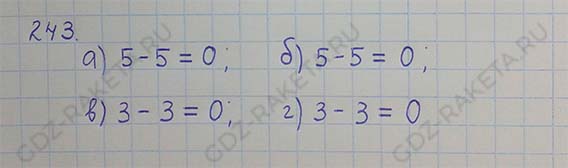 243.
а) 5 - 5 = 0; б) 5 - 5 = 0;
в) 3 - 3 = 0; г) 3 - 3 = 0
GDZ-RAKETA.RU
GDZ-RAKETA.RU
GDZ-RAKETA.RU
GDZ-RAKETA.RU